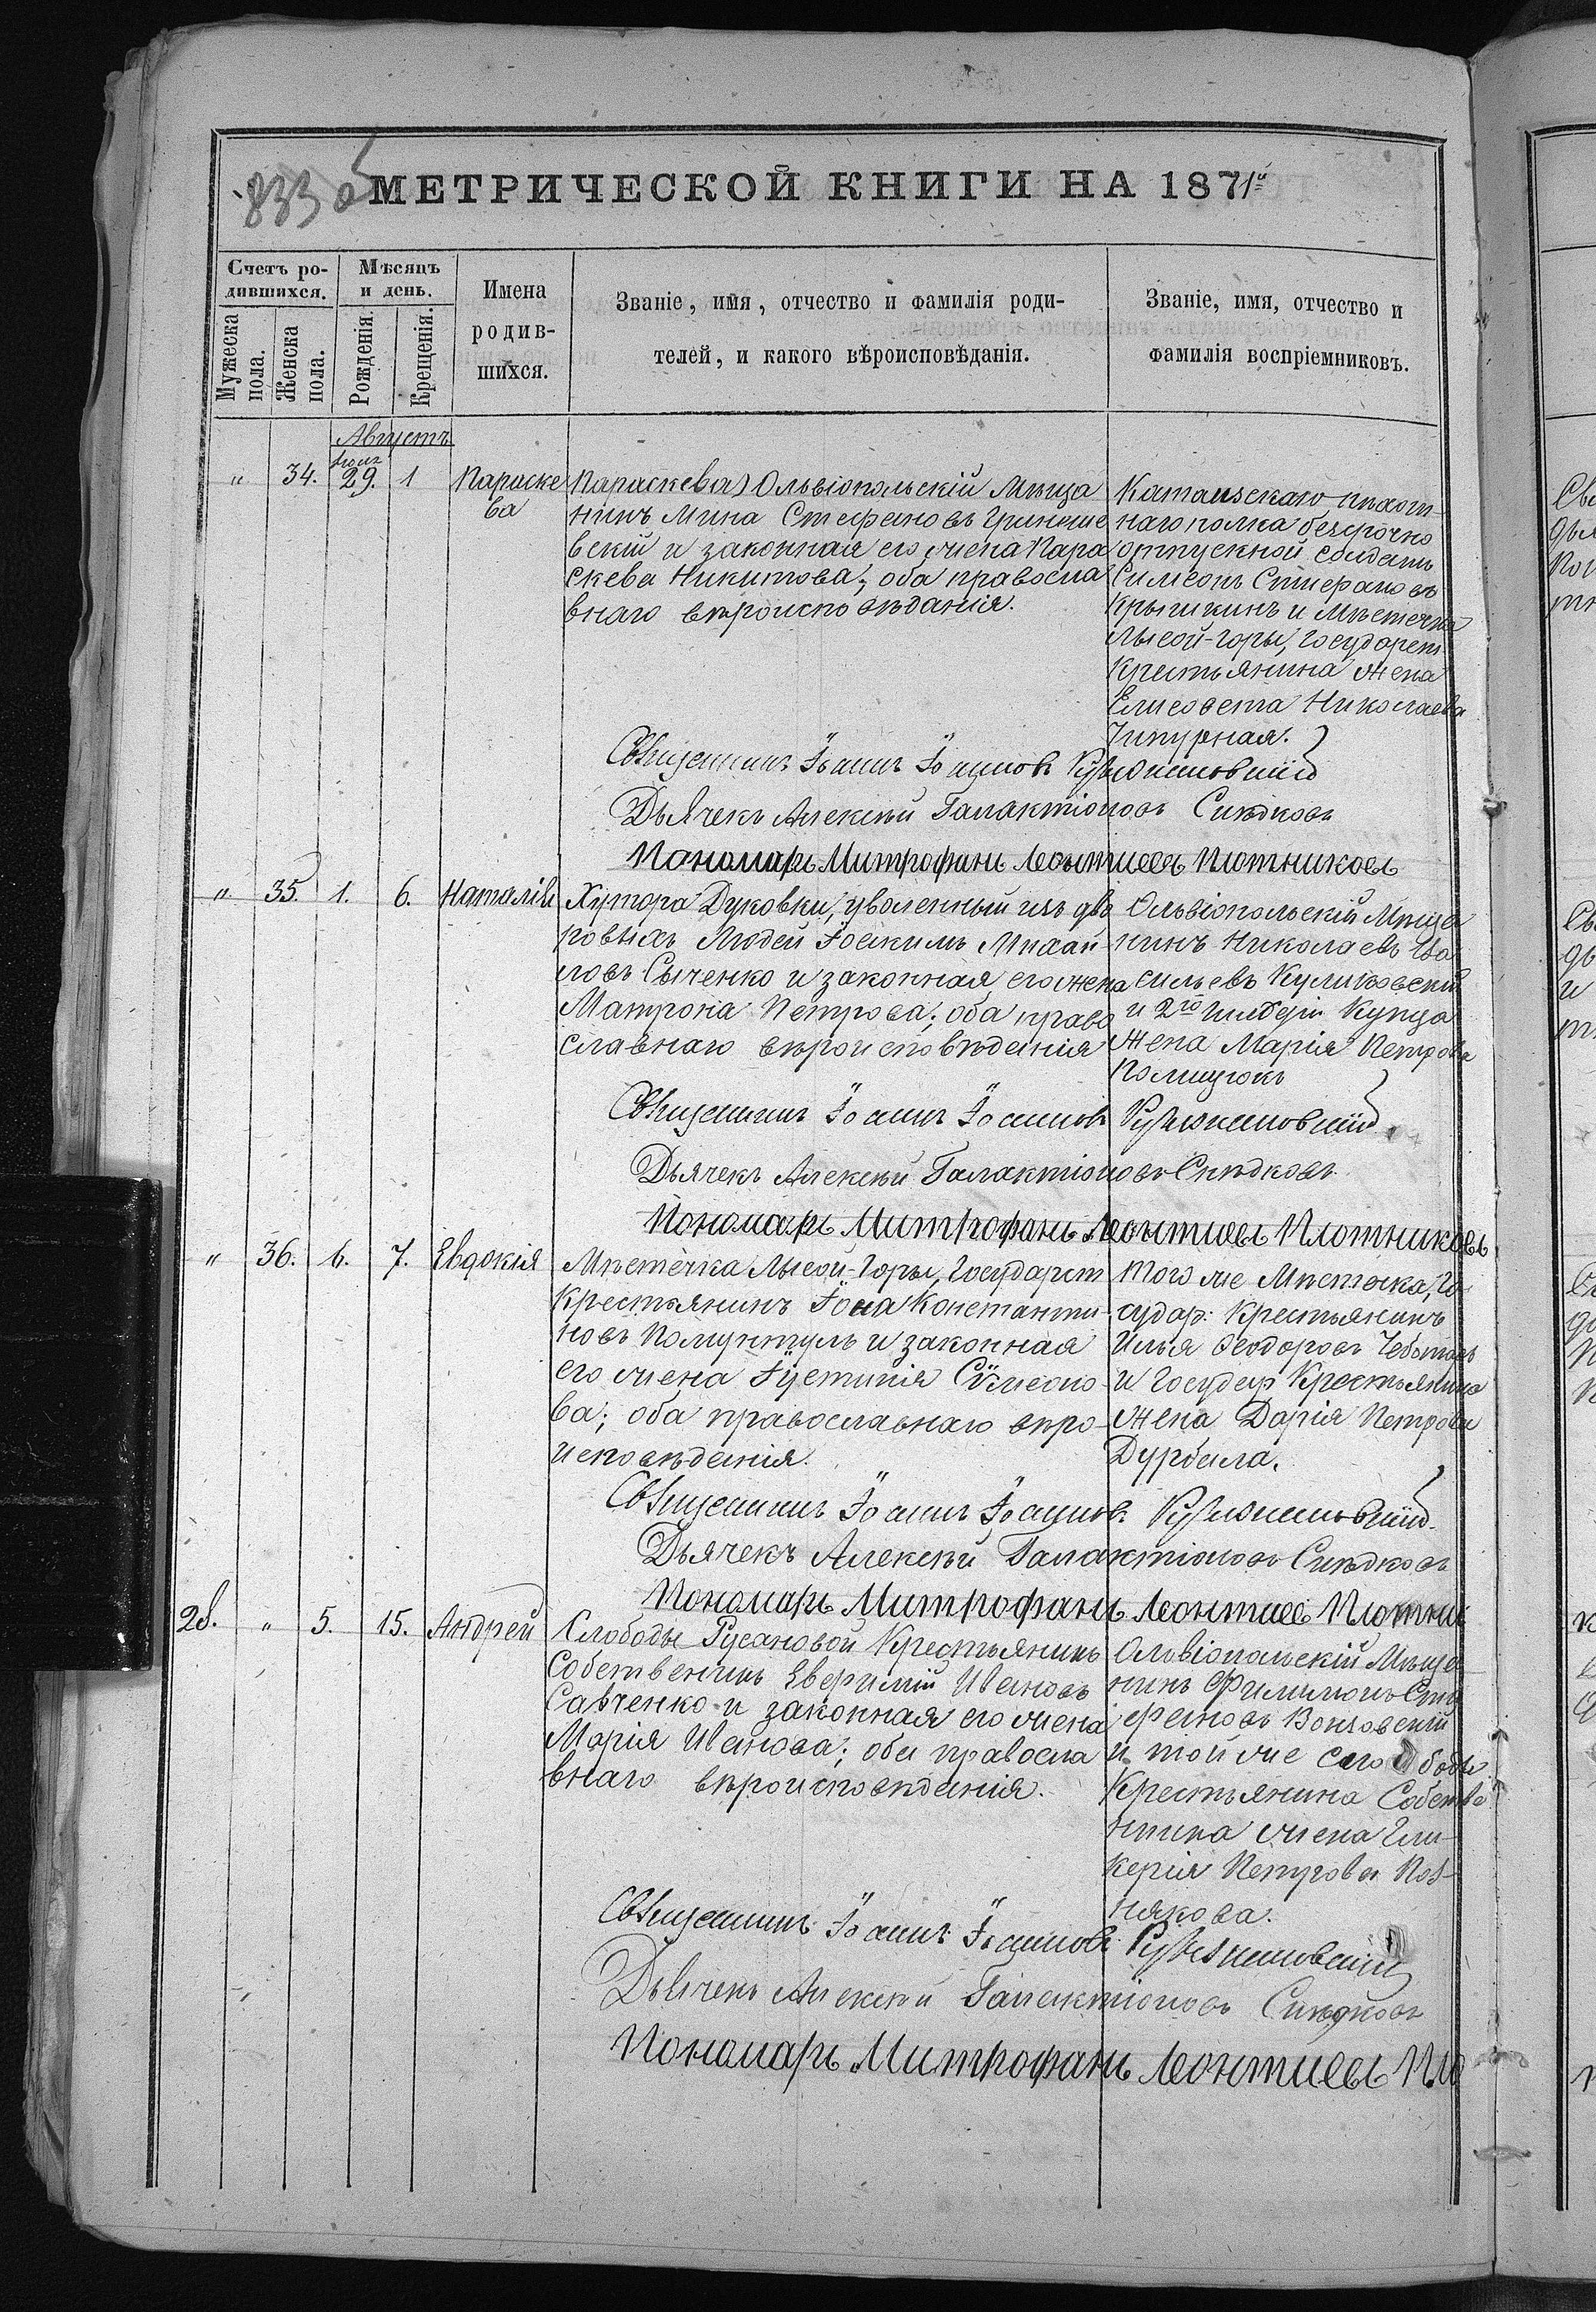 833 об
МЕТРИЧЕСКОЙ КНИГИ НА 1871й
Счетъ ро-
дившихся.
Мѣсяцъ
и день.
Имена
родив-
шихся.
Званіе, имя, отчество и фамилія роди-
телей, и какого вѣроисповѣданія.
Званіе, имя, отчество и
фамилія воспріемниковъ.
Мужеска
пола.
Женска
пола.
Рожденія.
Крещенія.
Августъ
" 34. 29. 1
Параске
ва
Параскева) Ольвіопольскій Мѣща
нинъ Мина Стефановъ
вскій и законная его жена Пара
скева Никитова; оба правосла
внаго вѣроисповѣданія.
наго полка безсрочно
отпускной солдатъ
Симеонъ Стефановъ
Крышкинъ и Мѣстечка
Лысой-Горы, Государст
Крестьянина жена
Елисовета Николаева
Чипурная.
Священникъ Іоаннъ Іоанновъ
Дьячекъ Алексѣй Галактіоновъ Снѣдковъ
Пономарь Митрофанъ Леонтиевъ Плотниковъ
" 35. 1. 6. Наталія
Хутора Дуковки, уволенный изъ дво
ровыхъ Людей Іоакимъ Михаи-
ловъ Сыченко и законная его жена
Матрона Петрова; оба право
славнаго вѣроисповѣданія
Ольвіопольскій Мѣща
нинъ Николаевъ Ва
сильевъ Куликовскій
и 2й гильдіи Купца
Жена Марія Петрова
Полищукъ
Священникъ Іоаннъ Іоанновъ
Дьячекъ Алексѣй Галактіоновъ Снѣдковъ
Пономарь Митрофанъ Леонтиевъ Плотниковъ
" 36. 6. 7. Евдокія
Мѣстечка Лысой-Горы, Государст
Крестьянинъ Іона Константи-
новъ и законная
его жена Іустинія Сѵмеоно-
ва; оба православнаго вѣро-
исповѣданія.
Того же Мѣстечка, Го-
судар: Крестьянинъ
Илья Феодоровъ
и Государ Крестьянина
Жена Дарія Петрова
Дурбала.
Священникъ Іоаннъ Іоанновъ
Дьячекъ Алексѣй Галактіоновъ Снѣдковъ
Пономарь Митрофанъ Леонтиевъ Плотник
28. " 5. 15. Андрей
Слободы Русановой Крестьянинъ
Собственикъ Евфимій Ивановъ
Савченко и законная его жена
Марія Иванова; оба правосла
внаго вѣроисповѣданія.
Ольвіопольскій Мѣща
нинъ Филимонъ Сте
фановъ
и той же слободы
Крестьянина Собстве
нника жена Гли-
керія Петрова Поз-
някова.
Священникъ Іоаннъ Іоанновъ
Дьячекъ Алексѣй Галактіоновъ Снѣдковъ
Пономарь Митрофанъ Леонтиевъ Пло